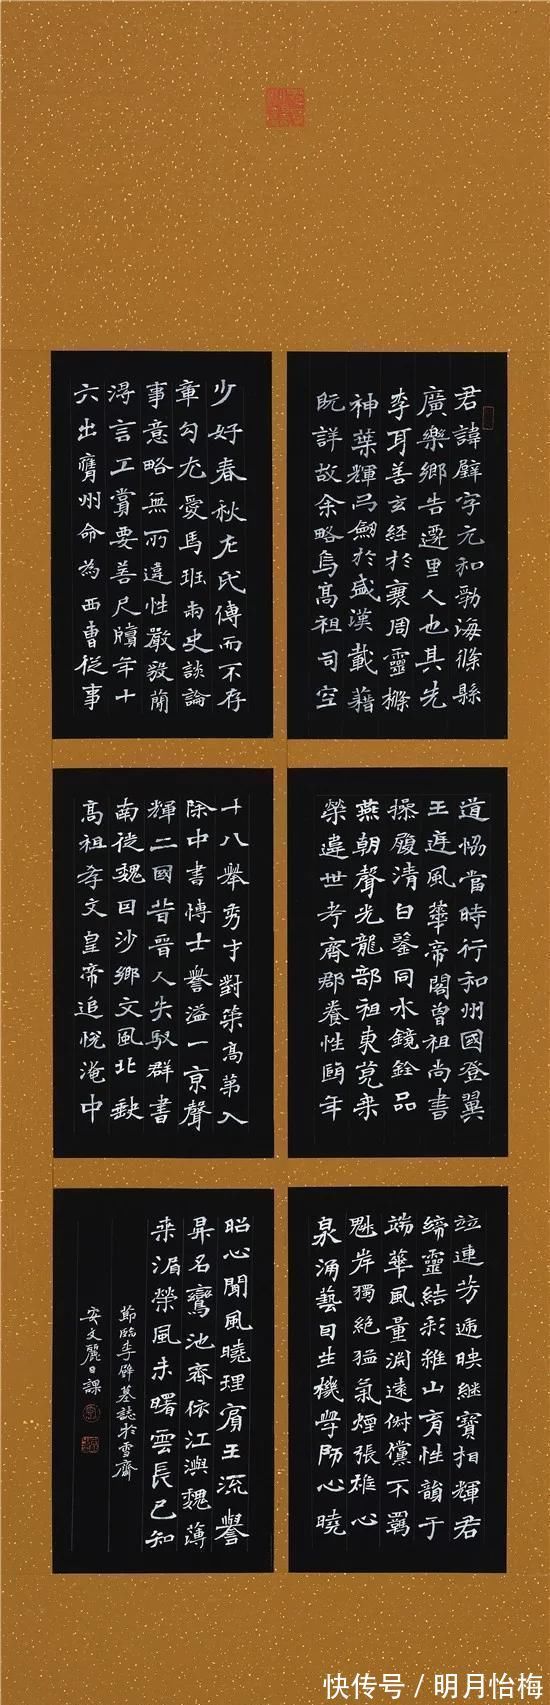 君諱璧字元和勃海條縣
廣樂鄉吉遷里人也其先
李耳著玄經於衰周靈櫷
神葉輝弓劒於盛漢載藉
既詳故余略焉高祖司空
道協當時行和州國登翼
王庭風華帝閣曾祖尚書
操履清白鑒同水鏡銓品
燕朝聲光龍部祖東莞乘
榮違世考齊郡養性頤年
並連芳遞映繼寶相輝君
締靈結彩維山育性韻宇
端華風量淵遠俶儻不羈
魁岸獨絕猛氣煙張雄心
泉涌藝因生機學師心曉
少好春秋左氏傳而不存
章勾尤愛馬班兩史談論
事意略無所違性嚴毅簡
得言工賞要善尺牘年十
六出膺州命為西曹從事
十八舉秀才對策高第入
除中書博士譽溢一京聲
輝二國昔晉人失馭群書
南徙魏因沙鄉文風北缺
高祖孝文皇帝追悅淹中
昭心聞風曉理賓王流譽
昇名鸞池齊依江澳魏薄
来湄榮風未曙雲長已知
節臨李璧墓誌於雪齋
安文麗日課
快传号/明月怡梅